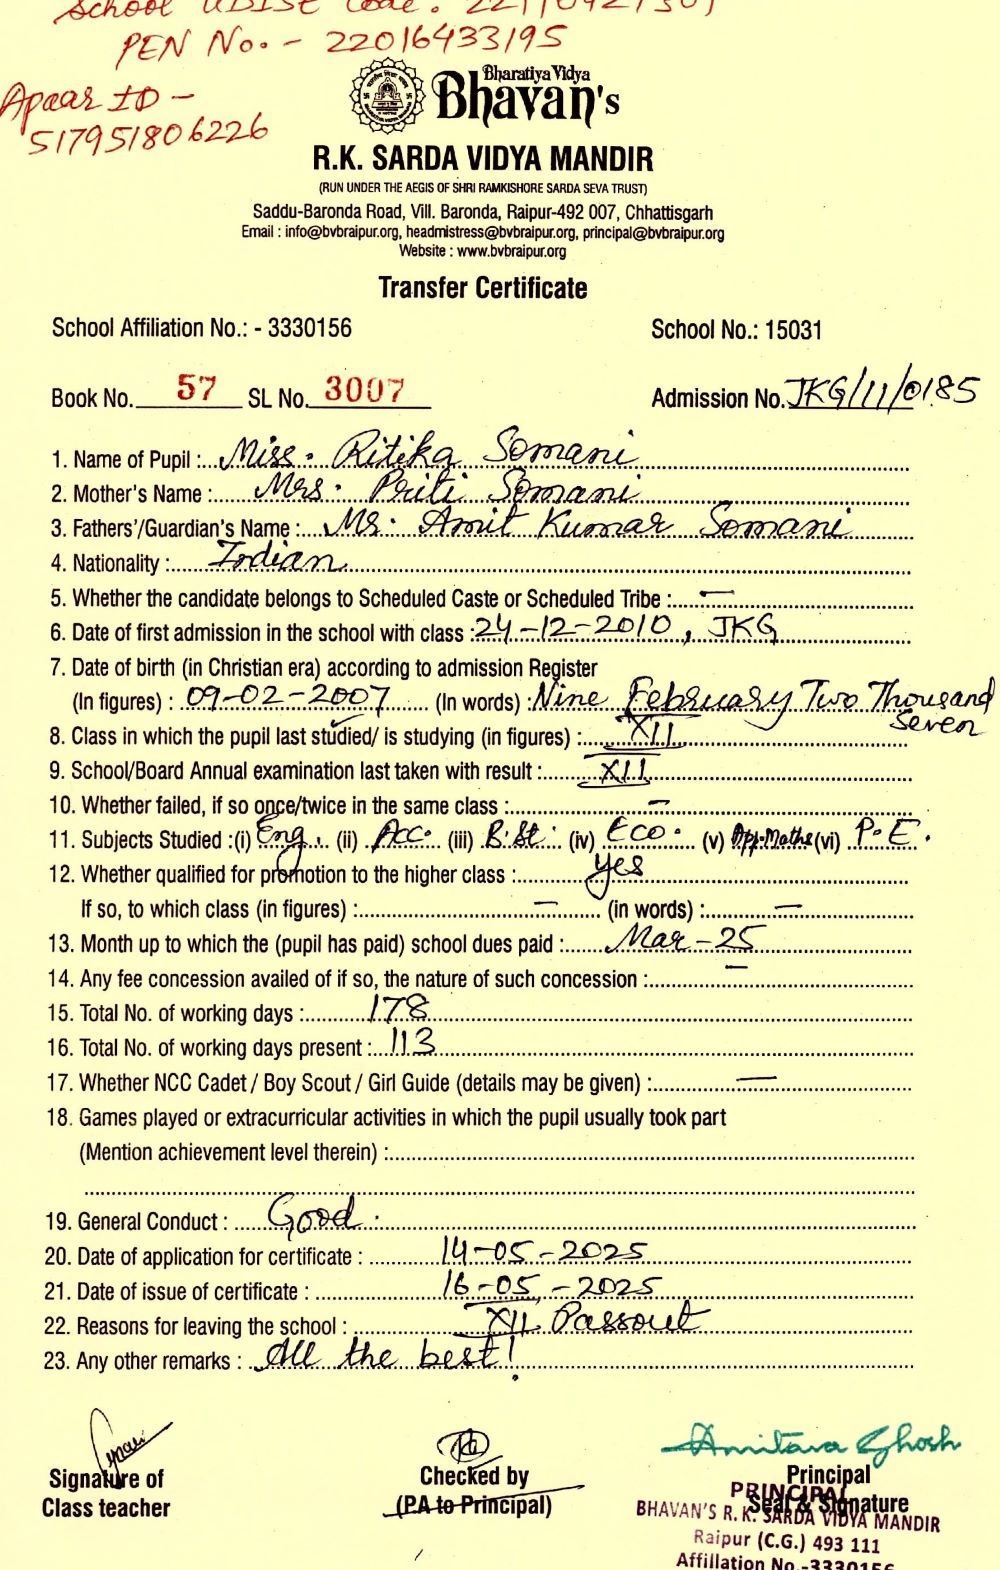 School UDISE Code :
PEN No. - 22016433195
Apaar ID -
517951806226
Bharatiya Vidya
Bhavan's
R.K. SARDA VIDYA MANDIR
(RUN UNDER THE AEGIS OF SHRI RAMKISHORE SARDA SEVA TRUST)
Saddu-Baronda Road, Vill. Baronda, Raipur-492 007, Chhattisgarh
Email : info@bvbraipur.org, headmistress@bvbraipur.org, principal@bvbraipur.org
Website : www.bvbraipur.org
Transfer Certificate
School Affiliation No.: - 3330156 School No.: 15031
Book No. 57 SL No. 3007 Admission No. JKG/11/0185
1. Name of Pupil : Miss. Ritika Somani
2. Mother's Name : Mrs. Priti Somani
3. Fathers'/Guardian's Name : Mr. Amit Kumar Somani
4. Nationality : Indian
5. Whether the candidate belongs to Scheduled Caste or Scheduled Tribe : —
6. Date of first admission in the school with class : 24-12-2010, JKG
7. Date of birth (in Christian era) according to admission Register
(In figures) : 09-02-2007 (In words) : Nine February Two Thousand
Seven
8. Class in which the pupil last studied/ is studying (in figures) : XII
9. School/Board Annual examination last taken with result : XII
10. Whether failed, if so once/twice in the same class : —
11. Subjects Studied :(i) Eng. (ii) Acc. (iii) B.St. (iv) Eco. (v) App.Maths (vi) P.E.
12. Whether qualified for promotion to the higher class : yes
If so, to which class (in figures) : — (in words) : —
13. Month up to which the (pupil has paid) school dues paid : Mar-25
14. Any fee concession availed of if so, the nature of such concession : —
15. Total No. of working days : 178
16. Total No. of working days present : 113
17. Whether NCC Cadet / Boy Scout / Girl Guide (details may be given) : —
18. Games played or extracurricular activities in which the pupil usually took part
(Mention achievement level therein) :
19. General Conduct : Good.
20. Date of application for certificate : 14-05-2025
21. Date of issue of certificate : 16-05-2025
22. Reasons for leaving the school : XII Passout
23. Any other remarks : All the best!
Amitava Ghosh
Signature of Checked by Principal
Class teacher (P.A to Principal) Seal & Signature
PRINCIPAL
BHAVAN'S R. K. SARDA VIDYA MANDIR
Raipur (C.G.) 493 111
Affillation No.-3330156